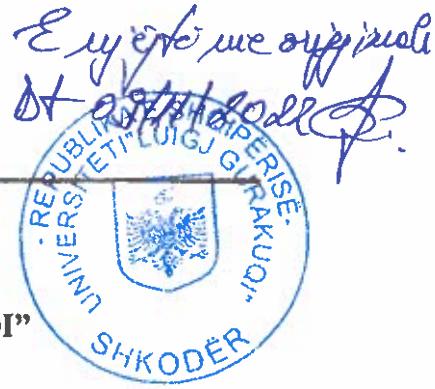 E njëjtë me origjinali
Dt
2022
REPUBLIKA E SHQIPËRISË
UNIVERSITETI "LUIGJ GURAKUQI"
SHKODËR
I”